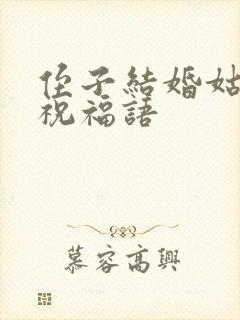 侄子結婚姑
祝福語
慕容高興